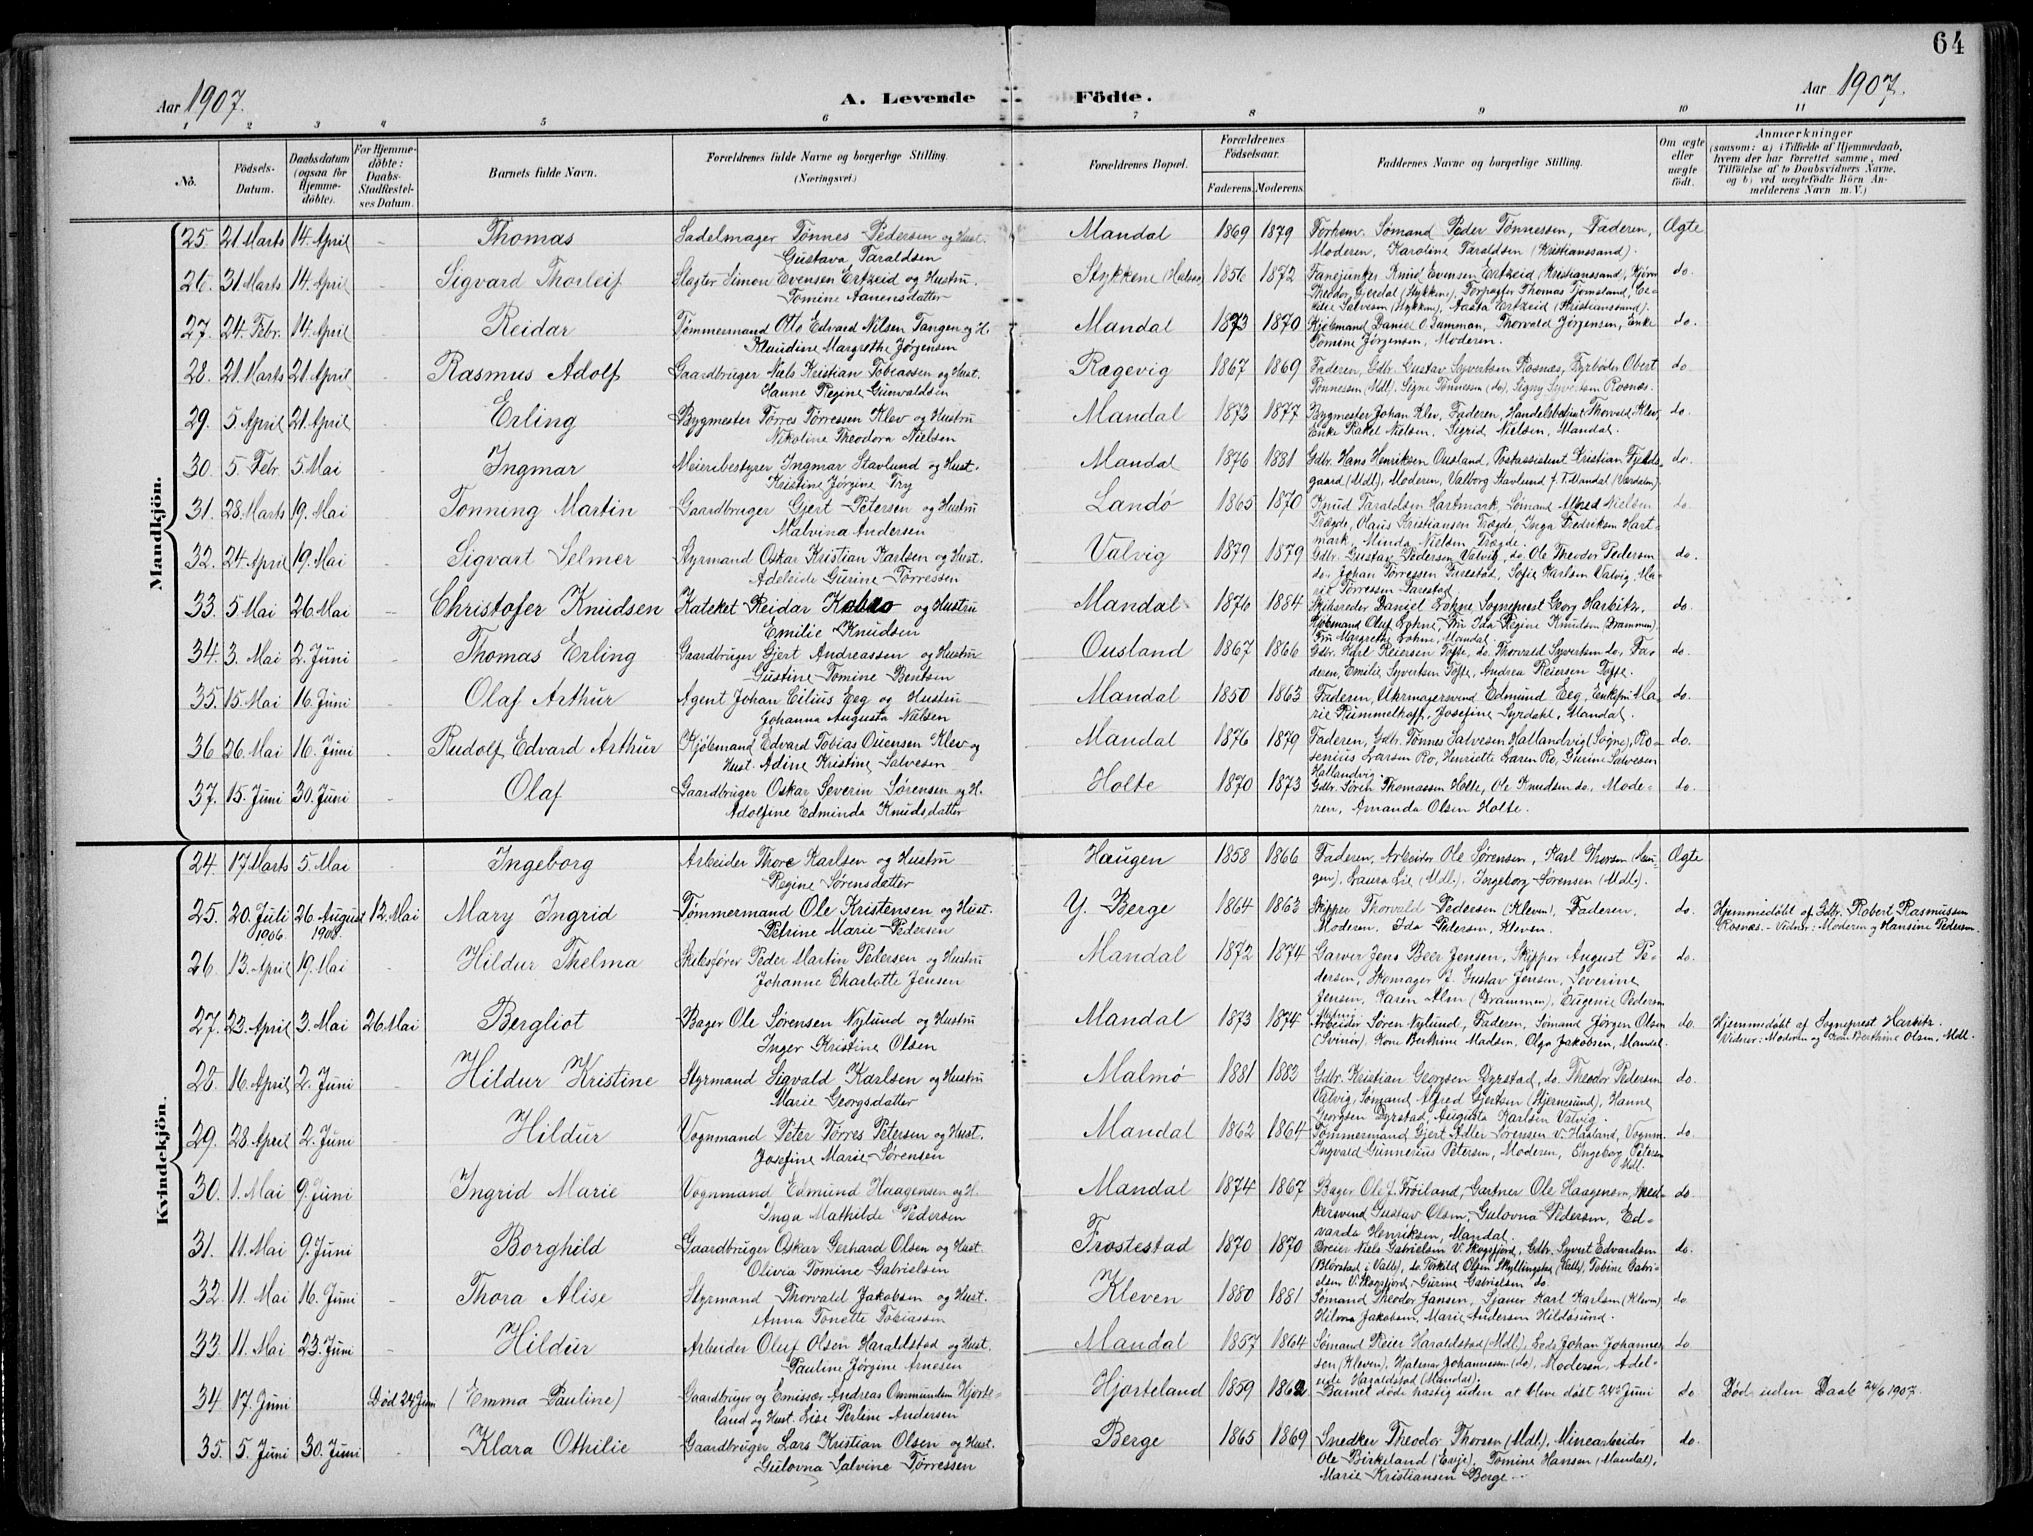 64
Aar 1907.
A. Levende Födte.
Aar 1907.
1 2 3 4 5 6 7 8 9 10 11
No.
Födsels-Datum.
Daabsdatum (ogsaa for Hjemmedöbte).
For Hjemmedöbte: Daabs-Stadfæstelses Datum.
Barnets fulde Navn.
Forældrenes fulde Navne og borgerlige Stilling. (Næringsvei.)
Forældrenes Bopæl.
Forældrenes Födselsaar. Faderens. Moderens.
Faddernes Navne og borgerlige Stilling.
Om ægte eller uægte födt.
Anmærkninger (saasom: a) i Tilfælde af Hjemmedaab, hvem der har forrettet samme, med Tilföielse af to Daabsvidners Navne, og b) ved uægtefödte Börn Anmelderens Navn m. V.)
Mandkjön.
25. 21 Marts 14. April - Thomas Sadelmager Tönnes Pedersen og Hust. Gustava Taraldsen Mandal 1869 1879 Forhen. Sömand Peder Tönnessen, Faderen, Moderen, Karoline Taraldsen (Kristianssand). Ægte
26. 31 Marts 14. April - Sigvard Thorleif Slagter Simon Evensen Ertzeid og Hustru Tomine Aanensdatter Stykkene (Halse) 1856 1872 Fanejunker Knud Evensen Ertzeid (Kristianssand), Theodor Gjerdal (Stykken), Forpagter Thomas Tjomsland, Salvesen (Stykken), Aasta Ertzeid (Kristianssand). do.
27. 24 Febr. 14 April - Reidar Tömmermand Otto Edvard Nilsen Tangen og H. Klaudine Margrethe Jörgensen Mandal 1873 1870 Kjöbmand Daniel O. Damman, Thorvald Jörgensen, Enke Tomine Jörgensen, Moderen. do.
28. 21 Marts 21 April - Rasmus Adolf Gaardbruger Niels Kristian Tobiassen og Hust. Hanne Regine Gunvaldsen Rægevig 1867 1869 Faderen, Gdbr. Gustav Syvertsen Rosnæs, Fyrböder Obert Tönnesen (Mdl), Signe Tönnesen (do), Signy Syvertsen Rosnæs. do
29. 5 April 21 April - Erling Bygmester Törres Törressen Klev og Hustru Nikoline Theodora Nielsen Mandal 1873 1877 Bygmester Johan Klev, Faderen, Handelsbetjent Thorvald Klev, Enke Rakel Nielsen, Sigrid Nielsen, Mandal. do.
30. 5 Febr. 5 Mai - Ingmar Meieribestyrer Ingmar Stavlund og Hust. Kristine Jörgine Try Mandal 1876 1881 Gdbr. Hans Henriksen Ousland, Postassistent Kristian Fjeldsgaard (Mdl), Moderen, Valborg Stavlund f. T. Mandal (Værdalen). do.
31. 28. Marts 19. Mai - Tönning Martin Gaardbruger Gjert Petersen og Hustru Malvina Andersen Landö 1865 1870 Knud Taraldsen Hartmark, Sömand Alfred Nielsen Trægde, Olaus Kristiansen Trægde, Inga Fredriksen Hartmark, Minda Nielsen, Trægde. do
32. 24. April 19. Mai - Sigvart Selmer Styrmand Oskar Kristian Karlsen og Hust. Adeleide Gurine Törressen Valvig 1879 1879 Gdbr. Gustav Pedersen Valvig, do. Ole Theodor Pedersen do. Johan Törressen Furestad, Sofie Karlsen Valvig, Marit Törressen Furestad do.
33. 5 Mai 26 Mai - Christofer Knudsen Kateket Reidar Kobro og Hustru Emilie Knudsen Mandal 1876 1884 Skibsreder Daniel Lohne, Sogneprest Georg Harbitz, Kjöbmand Oluf Lohne, Fru Ida Regine Knudsen (Drammen), Fru Margrethe Lohne, Mandal. do.
34. 3. Mai 2. Juni - Thomas Erling Gaardbruger Gjert Andreassen og Hustru Gustine Tomine Bentsen Ousland 1867 1866 Gdbr. Karl Reiersen Tofte, do. Thorvald Syvertsen do, Faderen, Emilie Syvertsen Tofte, Andrea Reiersen Tofte. do.
35. 15. Mai 16. Juni - Olaf Arthur Agent Johan Cilius Eeg og Hustru Johanna Augusta Nielsen Mandal 1850 1863 Faderen, Uhrmagersvend Edmund Eeg, Enkefru Marie Rummelhoff, Josefine Syrdahl, Mandal. do.
36 26. Mai 16. Juni Rudolf Edvard Arthur Kjöbmand Edvard Tobias Ouensen Klev og Hust. Adine Kristine Salvesen Mandal 1876 1879 Faderen, Gdbr. Tönnes Salvesen Hallandvig (Sögne), Rosenius Larsen Ro, Henriette Laren Ro, Gurine Salvesen Hallandvig. do.
37. 15. Juni 30. Juni - Olaf Gaardbruger Oskar Severin Sörensen og H. Adolfine Edminda Knudsdatter Holte 1870 1873 Gdbr. Sören Thomassen Holte, Ole Knudsen do, Moderen, Amanda Olsen Holte. do.
Kvindekjön.
24. 17 Marts 5. Mai Ingeborg Arbeider Thore Karlsen og Hustru Regine Sörensdatter Haugen 1858 1866 Faderen, Arbeider Ole Sörensen, Karl Thorsen (Haugen), Laura Lie (Mdl), Ingeborg Sörensen (Mdl). Ægte
25. 20. Juli 1906 26. August 1906 12. Mai Mary Ingrid Tömmermand Ole Kristensen og Hust. Petrine Marie Pedersen Y. Berge 1864 1863 Skipper Thorvald Pedersen (Kleven), Faderen, Moderen, Ida Petersen, Kleven. do. Hjemmedöbt af Gdbr. Robert Rasmussen Rosnæs. - Vidner: Moderen og Hansine Pedersen.
26. 13. April 19. Mai Hildur Thelma Skibsförer Peder Martin Petersen og Hustru Johanne Charlotte Jensen Mandal 1872 1874 Garver Jens Beer Jensen, Skipper August Pedersen, Skomager Gustav Jensen, Severine Jensen, Karen Alm (Drammen), Eugenie Pedersen do.
27. 23. April 3. Mai 26 Mai Bergliot Bager Ole Sörensen Nylund og Hustru Inger Kristine Olsen Mandal 1873 1874 Arbeider Sören Nylund, Faderen, Sömand Jörgen Olsen (Svinör), Kone Berthine Madsen, Olga Jakobsen, Mandal. do. Hjemmedöbt af Sogneprest Harbitz. Vidner: Moderen og Kone Berthine Olsen, Mdl.
28 16. April 2. Juni - Hildur Kristine Styrmand Sigvald Karlsen og Hustru Marie Georgsdatter Malmö 1881 1883 Gdbr. Kristian Georgsen Dyrstad, do. Theodor Pedersen Valvig, Sömand Alfred Gjertsen (Stjernesund), Hanne Georgsen Dyrstad, Augusta Karlsen Valvig. do.
29. 28. April 2. Juni - Hildur Vognmand Peter Törres Petersen og Hust. Josefine Marie Sörensen Mandal 1862 1864 Tömmermand Gjert Adler Sörensen V. Haaland, Vognm. Ingvald Gunnerius Petersen, Moderen, Engeborg Petersen Mdl. do.
30. 1. Mai 9. Juni - Ingrid Marie Vognmand Edmund Haagensen og H. Inga Mathilde Pedersen Mandal 1874 1867 Bager Ole J. Fröiland, Gartner Ole Haagensen, Snedkersvend Gustav Olsen, Gulovna Pedersen, Edvarda Henriksen, Mandal. do.
31. 11. Mai 9. Juni - Borghild Gaardbruger Oskar Gerhard Olsen og Hust. Olivia Tomine Gabrielsen Frostestad 1870 1870 Dreier Niels Gabrielsen V. Skogsfjord, Gdbr. Syvert Edvardsen (Blörstad i Valle), do. Torkild Olsen Skyllingstad (Valle), Tobine Gabrielsen V. Skogsfjord, Gurine Gabrielsen do. do.
32. 11. Mai 16. Juni - Thora Alise Styrmand Thorvald Jakobsen og Hust. Anna Tonette Tobiassen Kleven 1880 1881 Sömand Theodor Jansen, Sjauer Karl Karlsen (Kleven), Hilovna Jakobsen, Marie Andersen Hildösund. do
33. 11. Mai 23. Juni - Hildur Arbeider Oluf Olsen Haraldstad og Hust. Pauline Jörgine Arnesen Mandal 1857 1864 Sömand Peier Haraldstad (Mdl), Lods Johan Johannessen (Kleven), Hjalmar Johannessen (do), Moderen, Adeleide Haraldstad (Mandal). do
34 17. Juni Död 24 Juni (Emma Pauline) Gaardbruger og Emissær Andreas Ommundsen Hjorteland og Hust. Lise Perline Andersen Hjorteland 1859 1862 Barnet döde hastig uden at blive döbt 24de Juni do. Död uden Daab 24/6 1907.
35. 5 Juni 30. Juni - Klara Othilie Gaardbruger Lars Kristian Olsen og Hust. Gulovna Salvine Törressen Berge 1865 1869 Snedker Theodor Thorsen (Mdl), Minearbeider Ole Birkeland (Evje), Tomine Hansen (Mandal), Marie Kristiansen Berge. do.